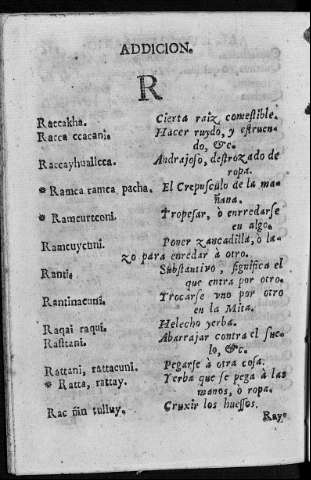 ADDICION.
R
Raccakha. Cierta raiz comestible.
Racca ccacani. Hacer ruydo, y estruen-
do, &c.
Raccayhuallcca. Andrajoso, destrozado de
ropa.
* Ramca ramca pacha. El Crepusculo de la ma-
ñana.
* Ramcurcconi. Tropesar, ò enrredarse
en algo.
Ramcuycuni. Poner zancadilla, ò la-
zo para enredar à otro.
Ranti. Substantivo, significa el
que entra por otro.
Rantinacuni. Trocarse vno por otro
en la Mita.
Raqai raqui. Helecho yerba.
Rasitani. Abarrajar contra el sue-
lo, &c.
Rattani, rattacuni. Pegarse à otra cosa.
* Ratta, rattay. Yerba que se pega à las
manos, ò ropa.
Rac ñin tulluy. Cruxir los huessos.
Ray-